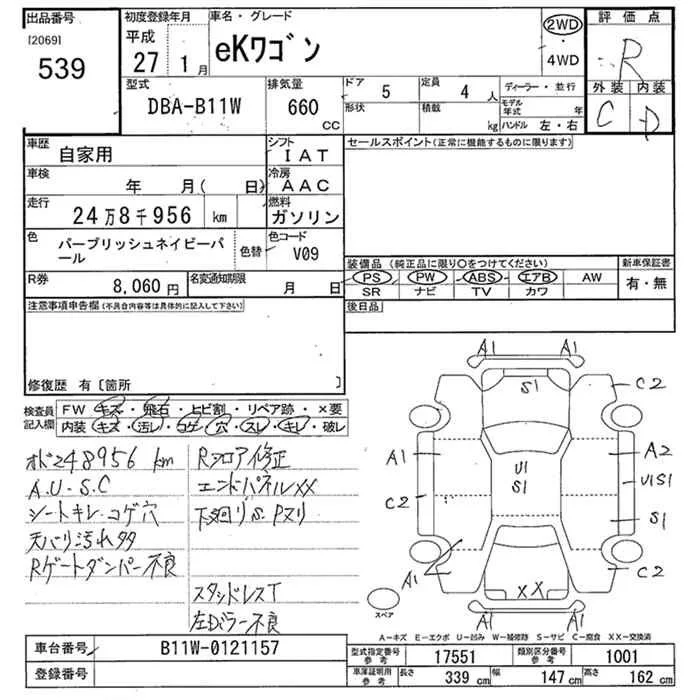 出品番号
[2069]
539
初度登録年月
平成
27年 1月
車名・グレード
eKワゴン
2WD
・
4WD
評価点
R
外装 内装
C D
型式
DBA-B11W
排気量
660
CC
ドア 5
定員 4 人
形状
積載 kg
ディーラー・並行
モデル年式 年
ハンドル 左・右
車歴
自家用
シフト
IAT
車検
年 月( 日)
冷房
AAC
走行
24万8千956 km
燃料
ガソリン
色
パープリッシュネイビーパール
色替
色コード
V09
R券
8,060円
名変通知期限
月 日
セールスポイント(正常に機能するものに限ります)
装備品 (純正品に限り○をつけてください)
新車保証書
PS PW ABS エアB AW
SR ナビ TV カワ
有・無
後日品
注意事項申告欄(不具合内容等は具体的に記入して下さい)
修復歴 有〔箇所 〕
検査員
記入欄
FW キズ・飛石・ヒビ割・リペア跡・×要
内装 キズ・汚レ・コゲ・穴・スレ・キレ・破レ
オド248956 km
A.U-S.C
シートキレ.コゲ穴
天バリ汚れ多
Rゲートダンパー不良
Rフロア修正
エンドパネルXX
下廻りS.Pヌリ
スタッドレスT
左Dミラー不良
A1 A1
S1
C2
A1
U1
S1
A2
C2
U1S1
S1
A1
C2
XX
A1 A1
スペア
A-キズ E-エクボ U-凹み W-補修跡 S-サビ C-腐食 XX-交換済
車台番号
B11W-0121157
登録番号
型式指定番号
参考
17551
類別区分番号
参考
1001
車庫証明用
参考
長さ 339 cm
幅 147 cm
高さ 162 cm